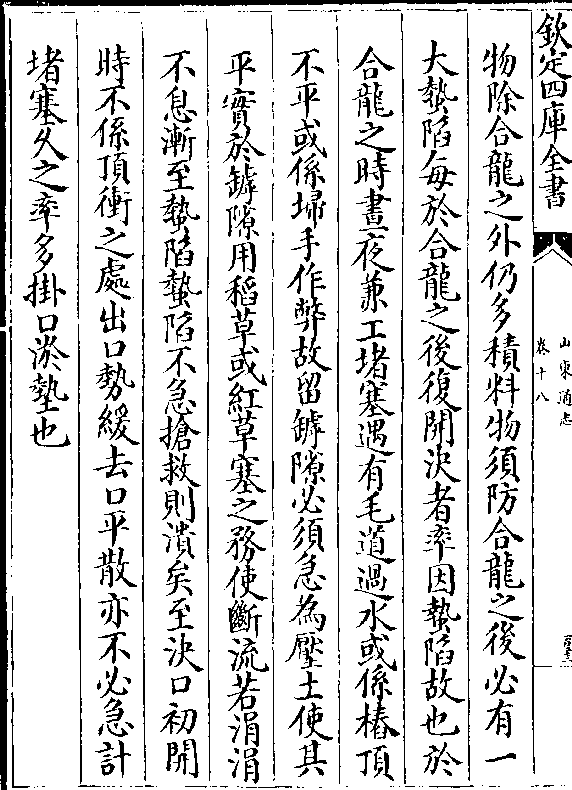 欽定四庫全書
山東通志
卷十八
物除合龍之外仍多積料物須防合龍之後必有一
大蟄陷每於合龍之後復開決者率因蟄陷故也於
合龍之時晝夜兼工堵塞遇有毛道過水或係樁頂
不平或係埽手作弊故留罅隙必須急為壓土使其
平實於罅隙用稻草或紅草塞之務使斷流若涓涓
不息漸至蟄陷蟄陷不急搶救則潰矣至決口初開
時不係頂衝之處出口勢緩去口平散亦不必急計
堵塞久之率多掛口淤墊也